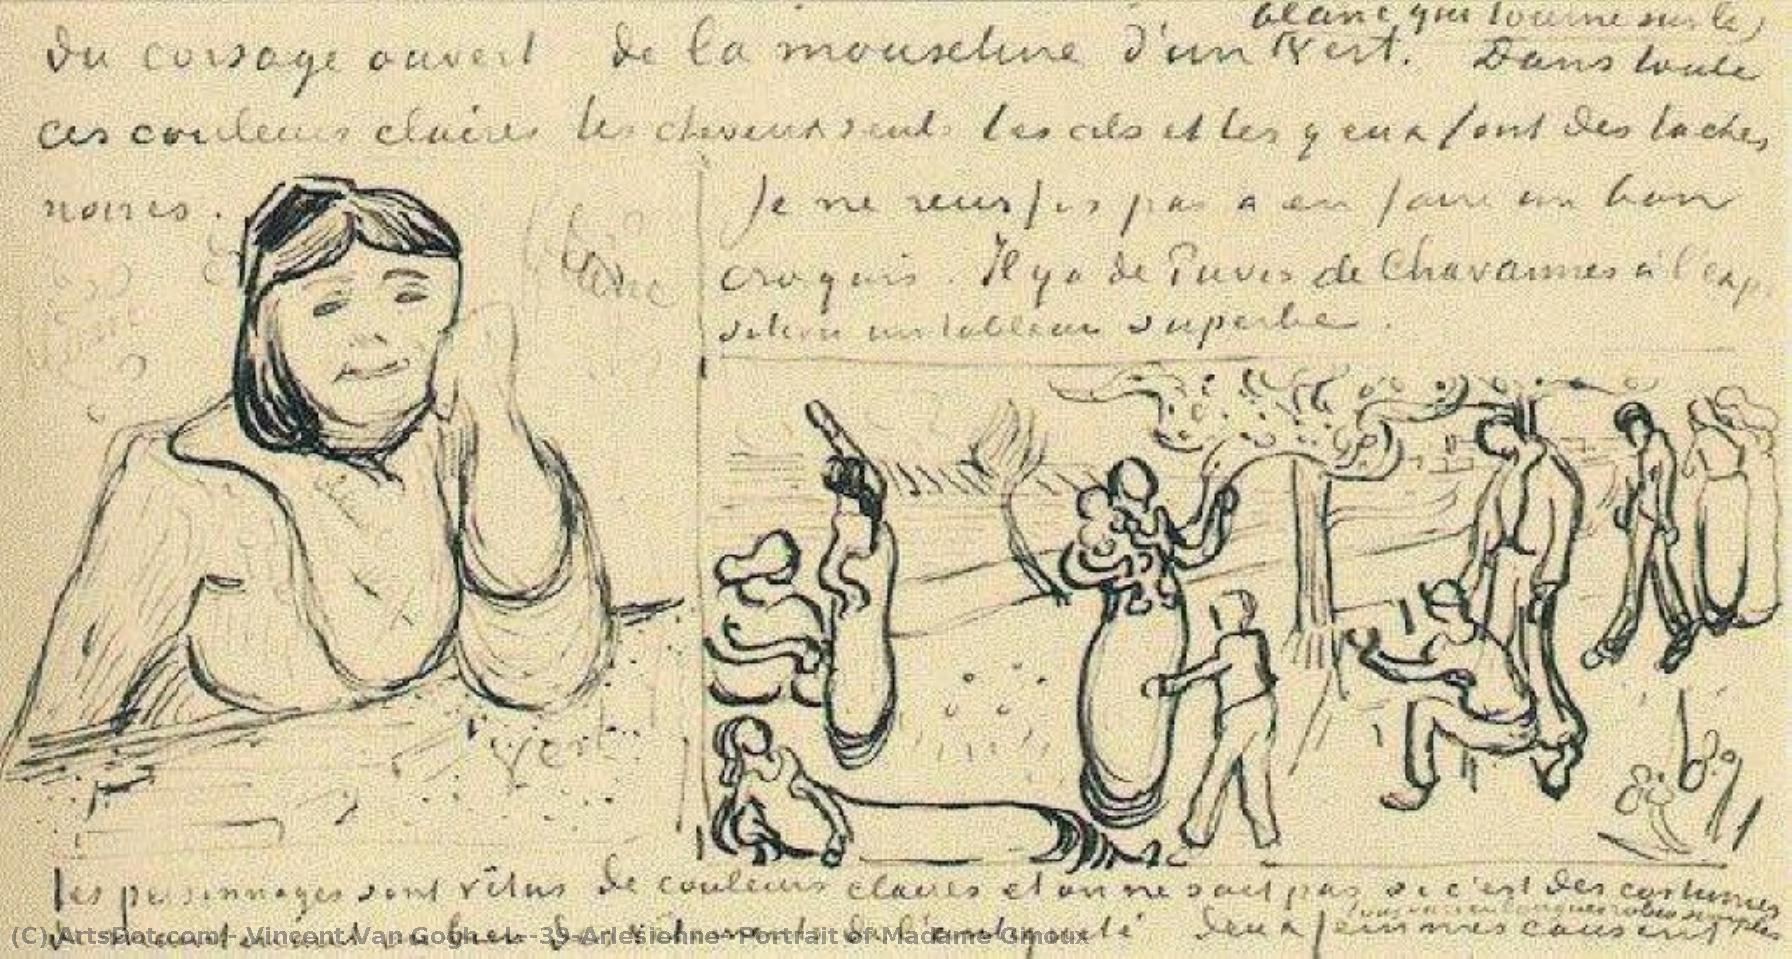 blanc qui tourne sur le
du corsage ouvert de la mousseline d'un vert. Dans toute
ces couleurs claires les cheveux seuls les cils et les yeux font des taches
noires.
Je ne reussis pas a en faire un bon
croquis. Il y a de Puvis de Chavannes à l'expo
sition un tableau superbe.
blanc
vert
les personnages sont vêtus de couleurs claires et on ne sait pas si c'est des costumes
des vêtements de l'antiquité deux femmes causent
(C) ArtsDot.com - Vincent Van Gogh - L-39 Arlesienne- Portrait of Madame Ginoux